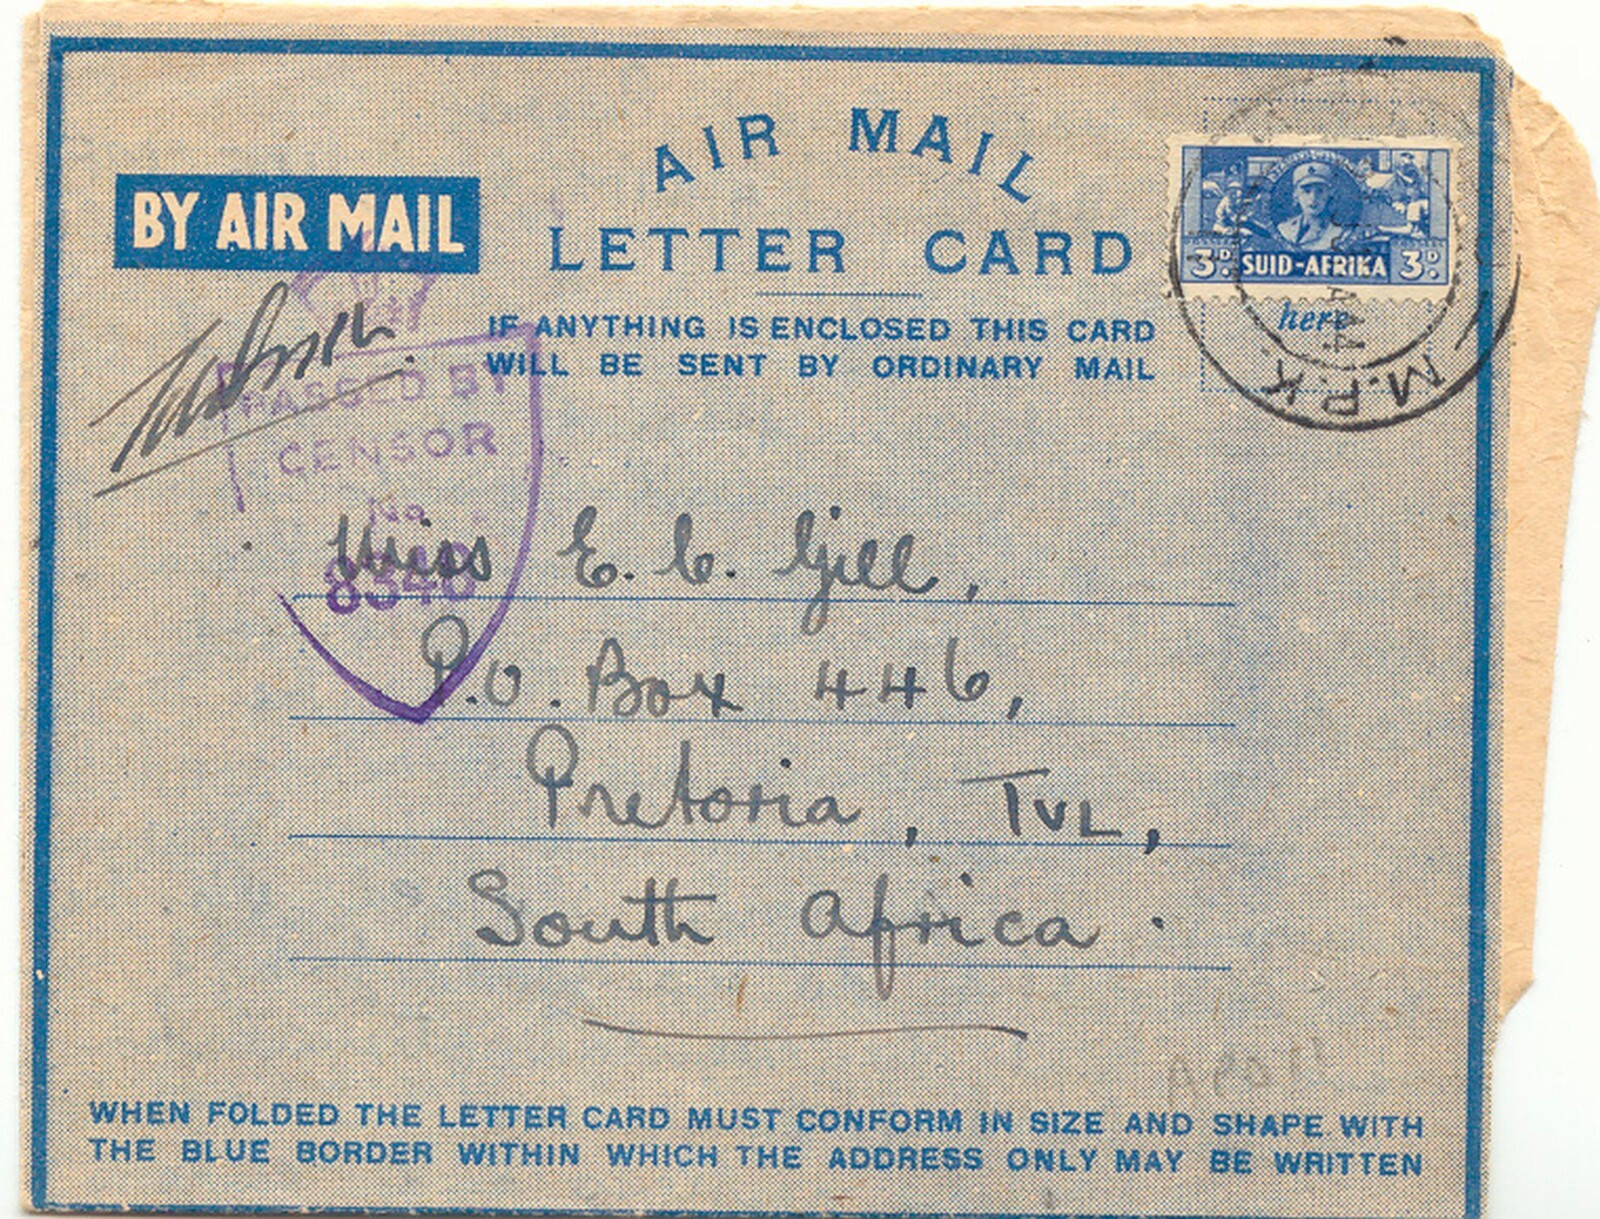 AIR MAIL
BY AIR MAIL
LETTER CARD
3D. SUID-AFRIKA 3D.
here
IF ANYTHING IS ENCLOSED THIS CARD
WILL BE SENT BY ORDINARY MAIL
M.P.K.
PASSED BY
CENSOR
No
8340
Miss E. C. Gill,
P.O. Box 446,
Pretoria, TVL,
South Africa.
WHEN FOLDED THE LETTER CARD MUST CONFORM IN SIZE AND SHAPE WITH
THE BLUE BORDER WITHIN WHICH THE ADDRESS ONLY MAY BE WRITTEN